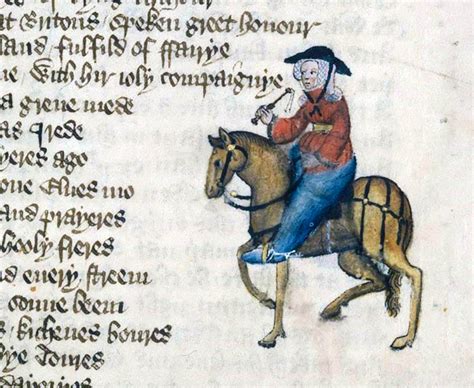 at Britons speken greet honour
land fulfild of ffairye
ne with hir ioly compaignye
a grene mede
as I rede
yeres ago
one Elues mo
and prayeres
hooly freres
and euery streem
onne beem
s kichenes boures
ye toures
dayeryes